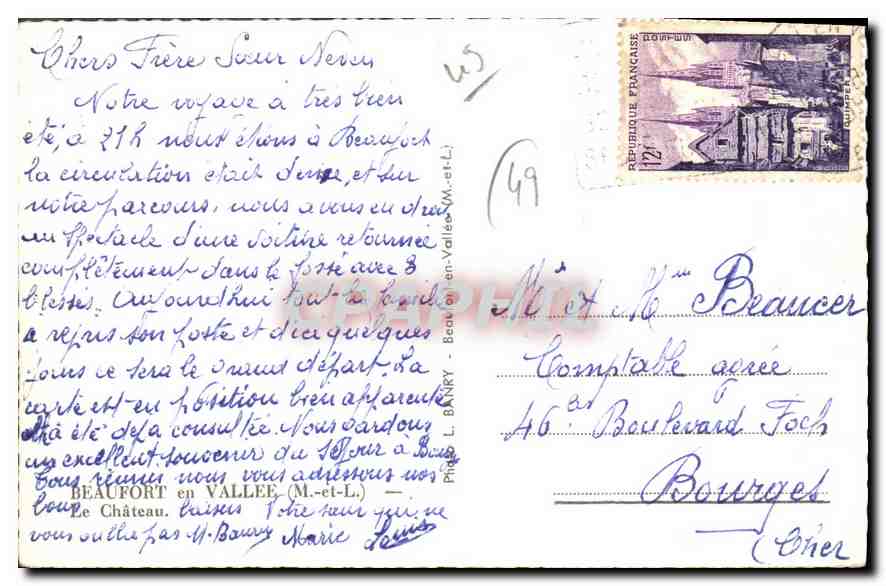 Chers Frère Sœur Neveu
Notre voyage à très bien
été, à 21h nous étions à Beaufort
la circulation était dense, et sur
notre parcours, nous avons eu droit
au spectacle d'une voiture retournée
complètement dans le fossé avec 3
blessés. Aujourdhui tout la famille
a repris son poste et d'ici quelques
jours ce sera le grand départ. La
carte est en position bien apparente
a été deja consultée. Nous gardons
un excellent souvenir du séjour à Bourges
Tous réunis nous vous adressons nos
bons baisers Votre sœur qui ne
vous oublie pas M. Baury Marie
BEAUFORT en VALLEE (M.-et-L.) —
Le Château.
Photo L. BANRY - Beaufort-en-Vallée (M.-et-L.)
CPAPHIL
49
(49
POSTES
REPUBLIQUE FRANÇAISE
12F
QUIMPER
Mr et Mme Beancer
Comptable agrée
46 bis Boulevard Foch
Bourges
(Cher